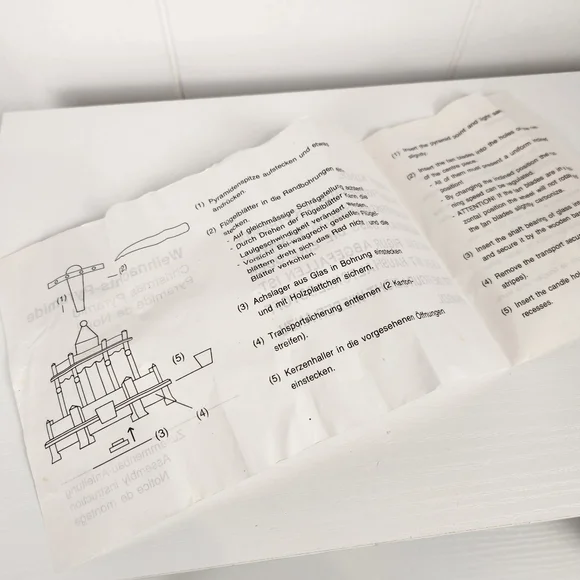 (1) Pyramidenspitze aufstecken und etwas
andrücken.
(2) Flügelblätter in die Randbohrungen ein-
stecken.
- Auf gleichmässige Schrägstellung achten!
- Durch Drehen der Flügelblätter kann die
Laufgeschwindigkeit verändert werden.
- Vorsicht! Bei waagrecht gestellten Flügel-
blättern dreht sich das Rad nicht und die
Blätter verkohlen.
(3) Achslager aus Glas in Bohrung einstecken
und mit Holzplattchen sichern.
(4) Transportsicherung entfernen (2 Karton-
streifen).
(5) Kerzenhaller in die vorgesehenen Öffnungen
einstecken.
(1)
(2)
(5)
(4)
(3)
(1) Insert the pyramid point and
(2) Insert the fan blades into the holes of
- As of them must
a uniform
position.
- By changing the incived position the
ning speed can be regulated.
- ATTENTION: If the fan blades are
zontal position the wheel will not
the fan blades slightly carbonize.
(3) Insert the shaft bearing of glass
and secure it by the wooden
(4) Remove the transport
stripes).
(5) Insert the candle
recesses.